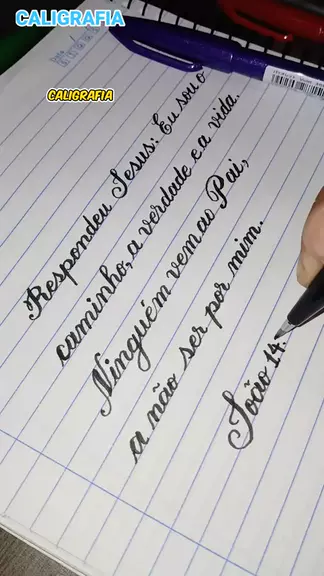 CALIGRAFIA
CALIGRAFIA
Respondeu Jesus: Eu sou o
caminho, a verdade e a vida.
Ninguém vem ao Pai,
a não ser por mim.
João 14: